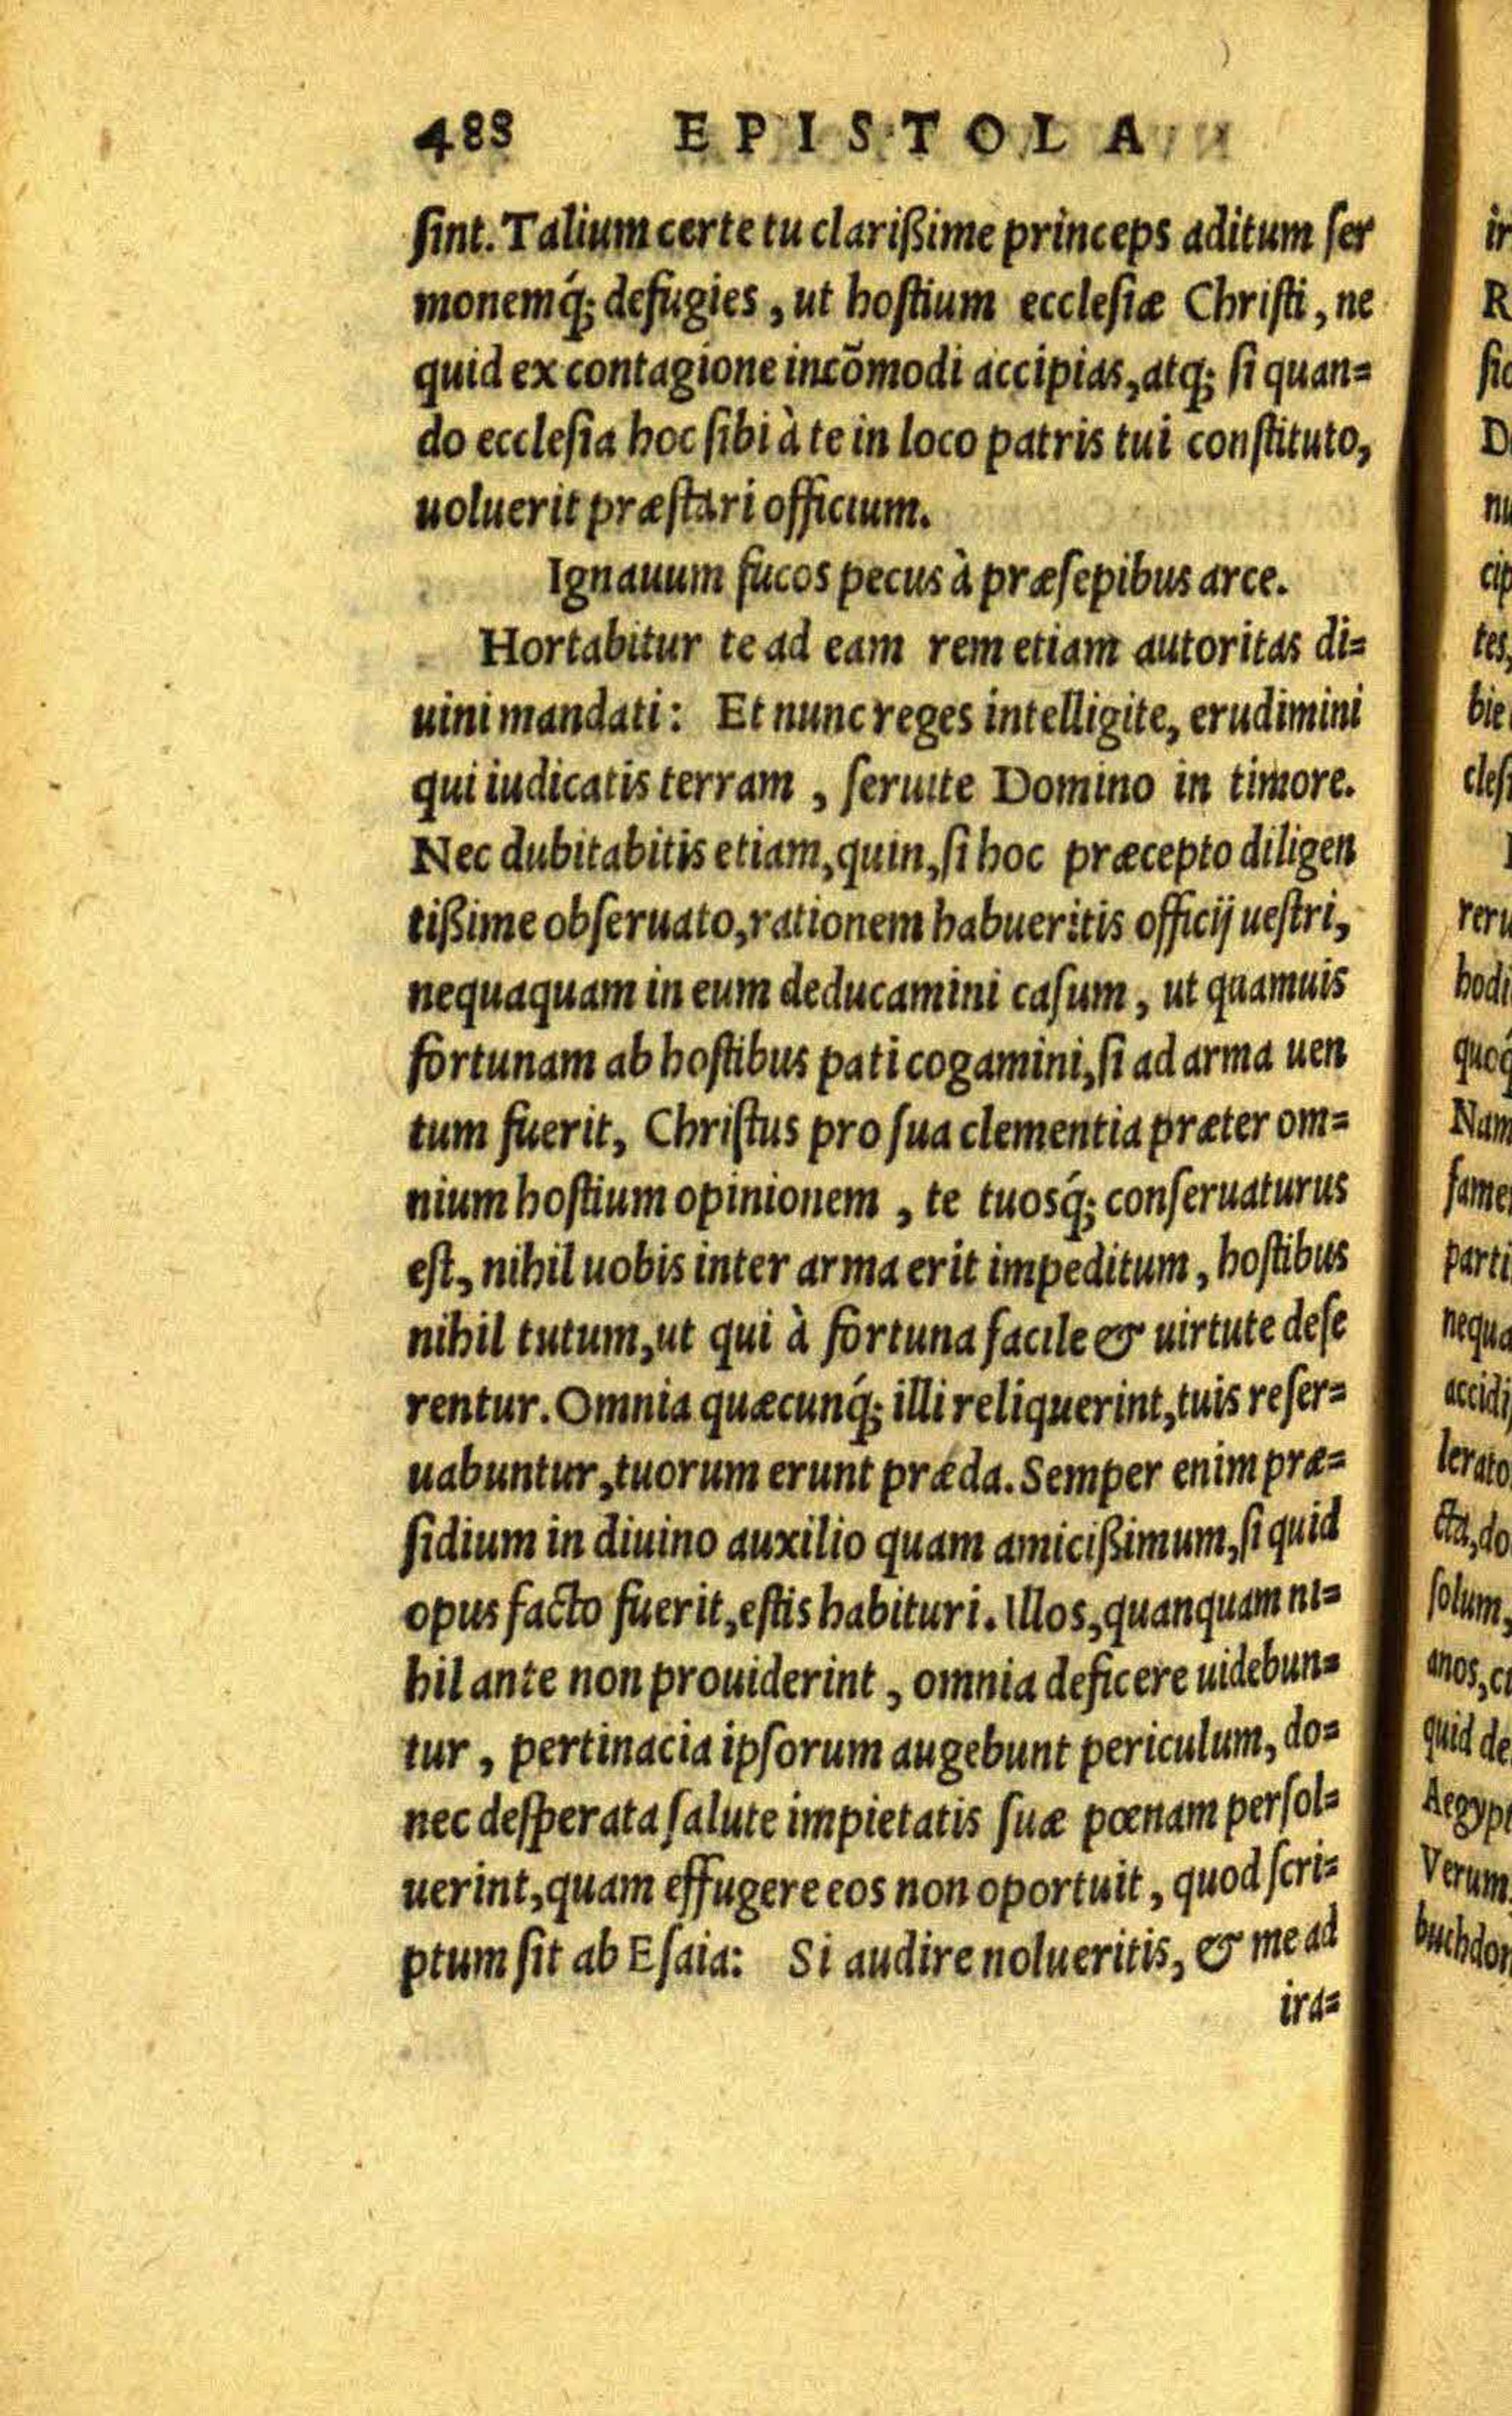 488 EPISTOLA
ſint. Talium certe tu clarißime princeps aditum ſer
monemq́; defugies, ut hoſtium eccleſiæ Chriſti, ne
quid ex contagione incõmodi accipias, atq; ſi quan=
do eccleſia hoc ſibi à te in loco patris tui conſtituto,
uoluerit præſtari officium.
Ignauum fucos pecus à præſepibus arce.
Hortabitur te ad eam rem etiam autoritas di=
uini mandati: Et nunc reges intelligite, erudimini
qui iudicatis terram, ſeruite Domino in timore.
Nec dubitabitis etiam, quin, ſi hoc præcepto diligen
tißime obſeruato, rationem habueritis officij ueſtri,
nequaquam in eum deducamini caſum, ut quamuis
fortunam ab hoſtibus pati cogamini, ſi ad arma uen
tum fuerit, Chriſtus pro ſua clementia præter om=
nium hoſtium opinionem, te tuosq́; conſeruaturus
eſt, nihil uobis inter arma erit impeditum, hoſtibus
nihil tutum, ut qui à fortuna facile & uirtute deſe
rentur. Omnia quæcunq́; illi reliquerint, tuis reſer=
uabuntur, tuorum erunt præda. Semper enim præ=
ſidium in diuino auxilio quam amicißimum, ſi quid
opus facto fuerit, eſtis habituri. Illos, quanquam ni=
hil ante non prouiderint, omnia deficere uidebun=
tur, pertinacia ipſorum augebunt periculum, do=
nec deſperata ſalute impietatis ſuæ pœnam perſol=
uerint, quam effugere eos non oportuit, quod ſcri=
ptum ſit ab Eſaia: Si audire nolueritis, & me ad
ira=